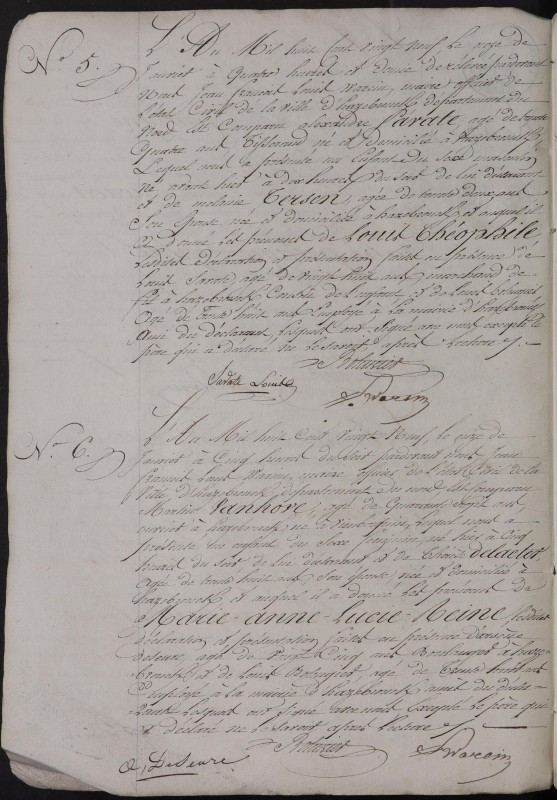 N° 5.
L'An Mil huit Cent vingt neuf, le onze de
Janvier à quatre heures et demie de relevée pardevant
Nous Jean francois Louis Warein, maire officier de
l'état Civil de la ville d'hazebrouck département du
Nord est Comparu alexandre Savale, agé de trente
quatre ans Tisserand né et domicilié à hazebrouck
Lequel nous a présenté un Enfant du Sexe masculin
né avant hier à dix heures du Soir de lui déclarant
et de melanie Tersen, agée de trente deux ans
Son épouse née et domiciliée à hazebrouck et auquel il
a donné les prénoms de Louis Théophile
Lesdites déclaration et présentation faites en présence de
Louis Savale, agé de vingt huit ans marchand de
fil à hazebrouck Oncle de l'enfant et de Louis
agé de trente huit ans Employé à la mairie d'hazebrouck
amis du déclarant, lesquels ont signé avec nous excepté le
père qui a déclaré ne le savoir après lecture
Savale Louis
JWarein
N° 6.
L'An Mil huit Cent vingt Neuf, le onze de
Janvier à Cinq heures du Soir pardevant Nous Jean
francois Louis Warein, maire officier de l'état Civil de la
Ville d'hazebrouck, département du nord est Comparu
Martin Vanhove, agé de quarante ans
ouvrier à hazebrouck, né à lequel nous a
présenté un enfant du Sexe feminin, né hier à Cinq
heures du Soir de lui déclarant et de
agée de trente huit ans Son épouse, née et domiciliée à
hazebrouck et auquel il a donné les prénoms de
Marie-Anne-Lucie-Reine Lesdites
déclaration et présentation faites en présence
deseure, agé de vingt Cinq ans à haze-
brouck et de Louis agé de Trente huit ans
Employé à la mairie d'hazebrouck amis du décla-
rant lesquels ont signé avec nous excepté le père qui
a déclaré ne le savoir après lecture
DeSeure.
JWarein